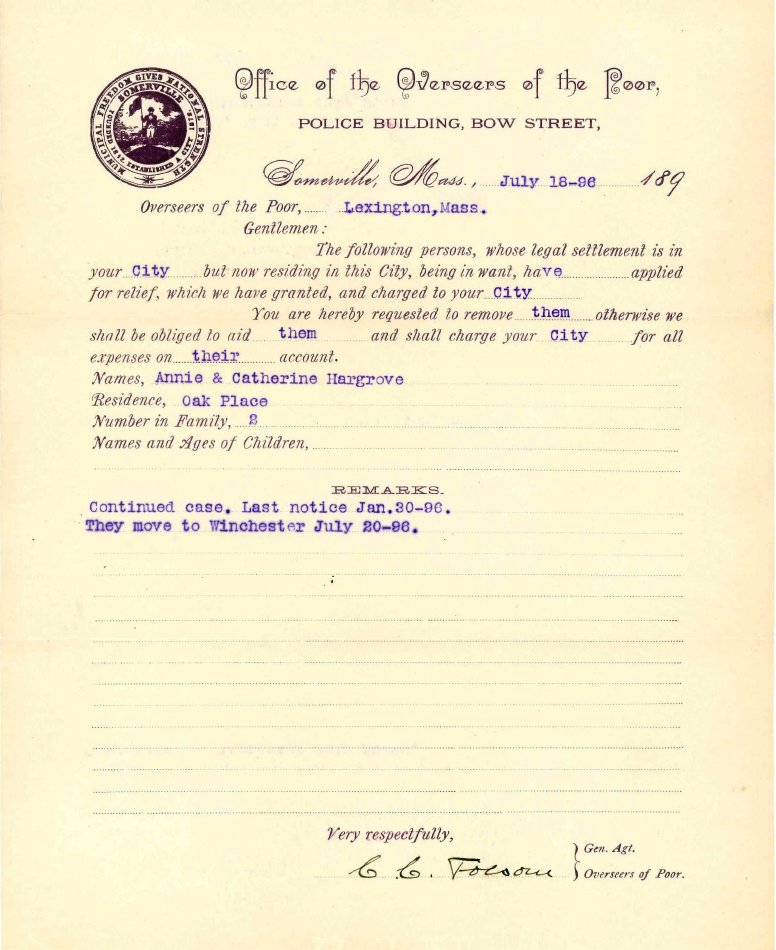 MUNICIPAL FREEDOM GIVES NATIONAL STRENGTH
SOMERVILLE
FOUNDED 1842. ESTABLISHED A CITY 1872.
Office of the Overseers of the Poor,
POLICE BUILDING, BOW STREET,
Somerville, Mass., July 18-96 189
Overseers of the Poor, Lexington,Mass.
Gentlemen:
The following persons, whose legal settlement is in
your City but now residing in this City, being in want, have applied
for relief, which we have granted, and charged to your City
You are hereby requested to remove them otherwise we
shall be obliged to aid them and shall charge your City for all
expenses on their account.
Names, Annie & Catherine Hargrove
Residence, Oak Place
Number in Family, 2
Names and Ages of Children,
REMARKS.
Continued case. Last notice Jan.30-96.
They move to Winchester July 20-96.
Very respectfully,
C. C. Folsom } Gen. Agt.
Overseers of Poor.